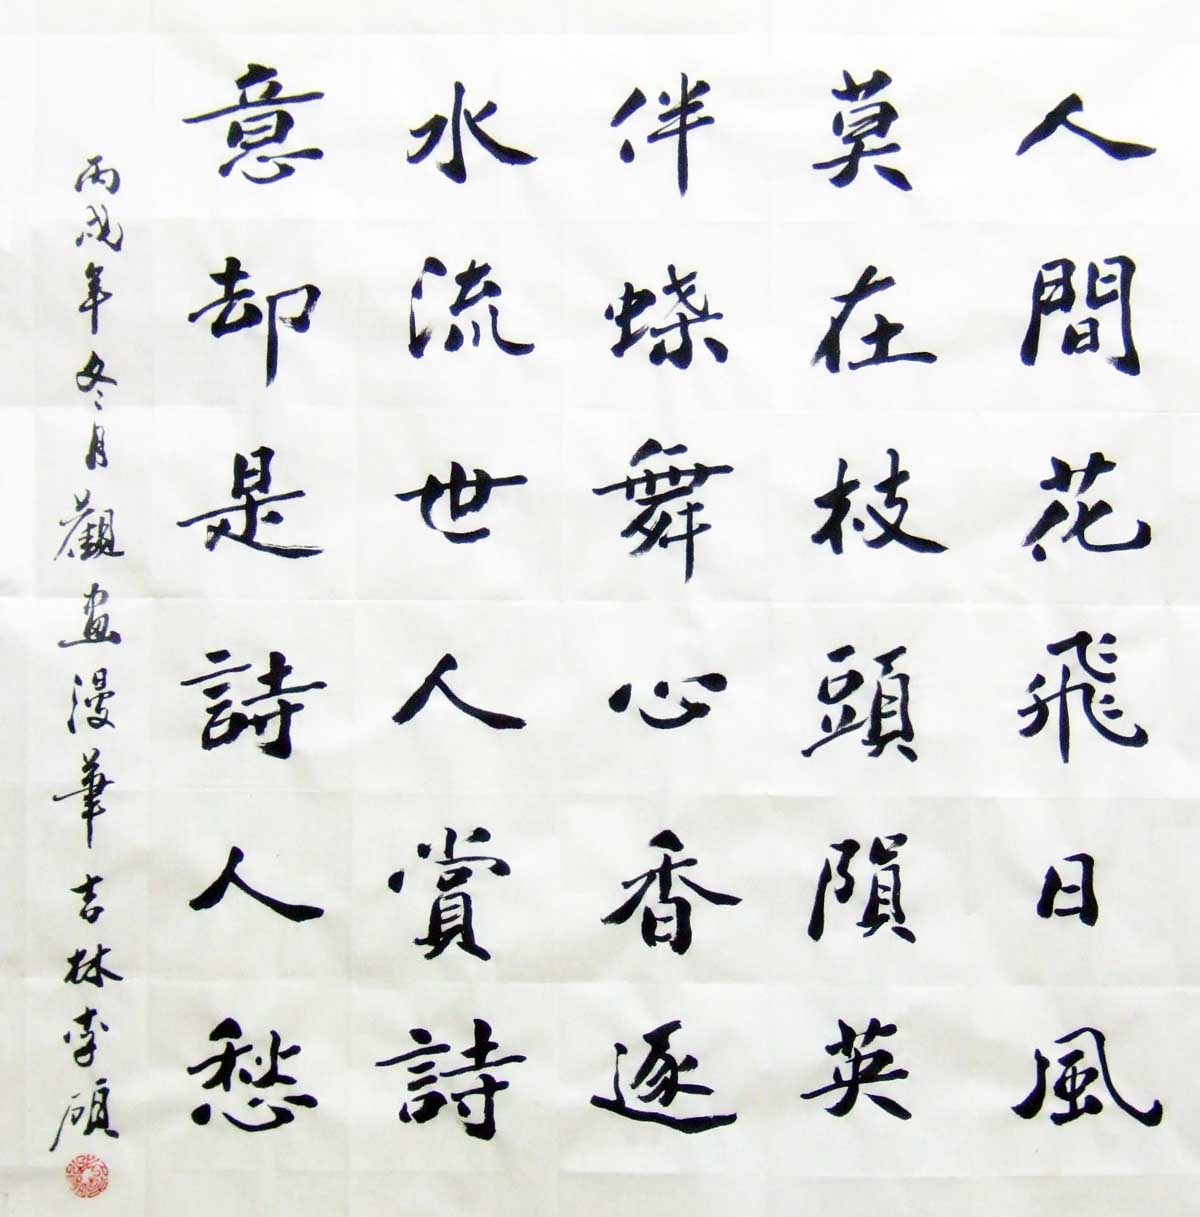 人間花飛日風
莫在枝頭隕英
伴蝶舞心香逐
水流世人賞詩
意却是詩人愁
丙戌年冬月觀畫漫筆吉林李碩